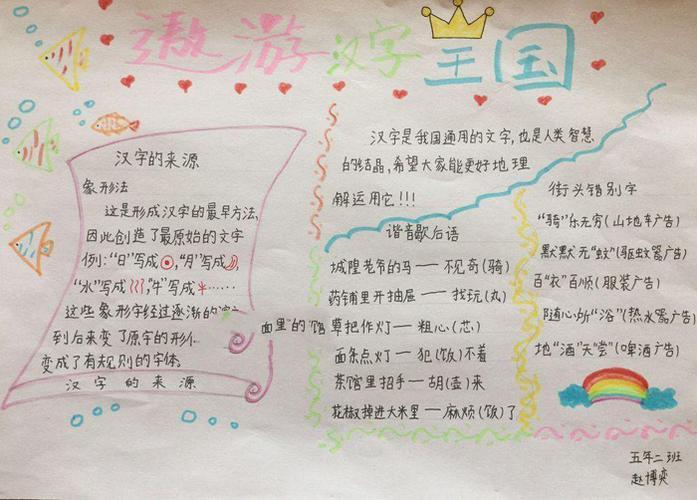 遨游汉字王国
汉字的来源
象形法
这是形成汉字的最早方法,
因此创造了最原始的文字
例:“日”写成,“月”写成
“水”写成,“牛”写成……
这些象形字经过逐渐的演
到后来变了原字的形
变成了有规则的字体
汉字的来源
面里"的"馅
汉字是我国通用的文字,也是人类智慧
的结晶,希望大家能更好地理
解运用它!!!
谐音歇后语
城隍老爷的马——不见奇(骑)
药铺里开抽屉——找玩(丸)
草把作灯——粗心(芯)
面条点灯——犯(饭)不着
茶馆里招手——胡(壶)来
花椒掉进大米里——麻烦(饭)了
街头错别字
“骑”乐无穷(山地车广告)
默默无“蚊”(驱蚊器广告)
百“衣”百顺(服装广告)
随心所“浴”(热水器广告)
地“酒”天堂”(啤酒广告)
五年二班
赵博奕